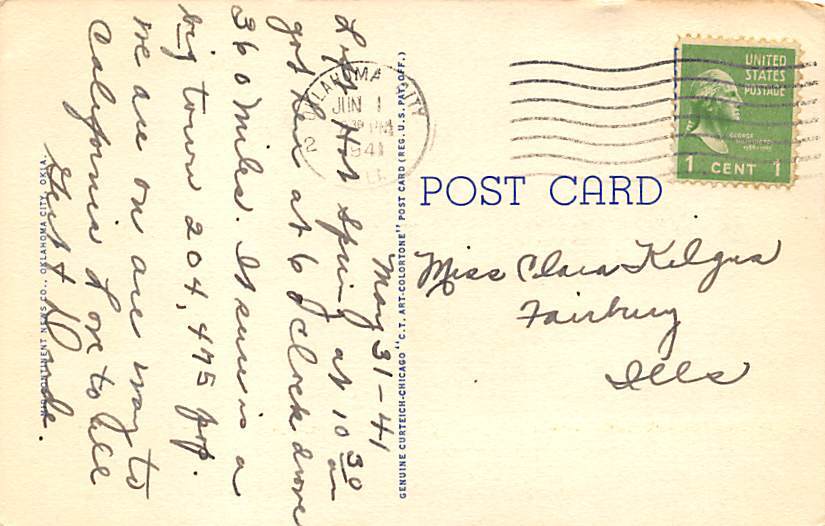 May 31-41
Left Hot Spring at 10 30 am
got her at 6 o clock drove
360 miles. It sure is a
big town 204,495 pop.
we are on are way to
California Love to all
OKLAHOMA CITY
JUN 1
PM
1941
2
UNITED
STATES
POSTAGE
GEORGE
WASHINGTON
1 CENT 1
POST CARD
Miss Clara Kilgus
Fairbury
Ills
GENUINE CURTEICH-CHICAGO "C.T. ART-COLORTONE" POST CARD (REG. U.S. PAT. OFF.)
NEWS CO., OKLAHOMA CITY, OKLA.